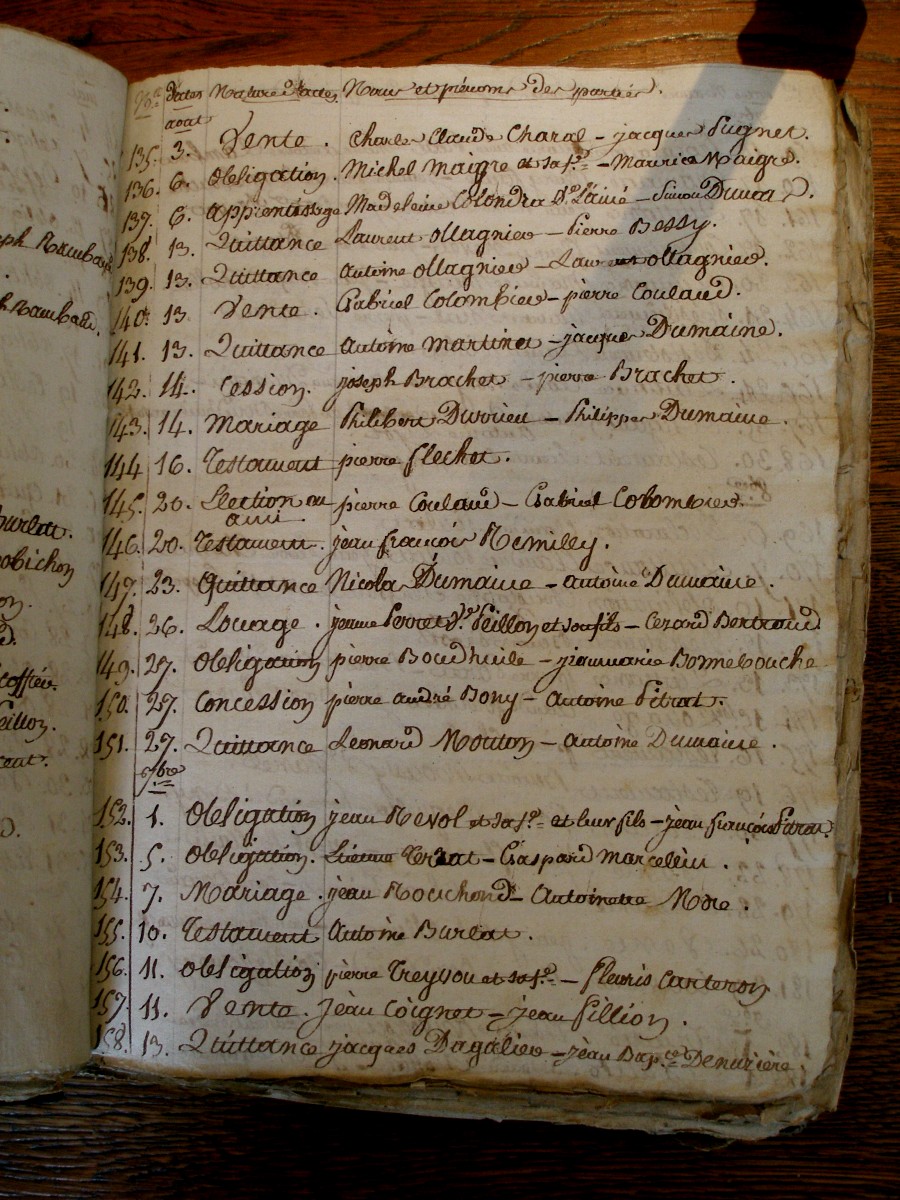 ph Rambau
h Rambaud.
burlat.
obichon
on.
d.
coffier
eillon.
cout.
D.
N.os dates Nature d'actes Noms et prénoms des parties.
aout
135. 3. Vente. Charles Claude Charal - jacques Pugnet.
136. 6. Obligation. Michel Maigre et sa f.e - Maurice Maigre.
137. 6. apprentissage Madeleine Colondra V.e Lávié - Simon
138. 13. Quittance Laurent Ollagnier - Pierre Bessy.
139. 13. Quittance antoine Ollagnier - Laurent ollagnier.
140. 13 Vente. Gabriel Colombier - pierre Coulaud.
141. 13. Quittance antoine martinet - jacques Dumaine.
142. 14. Cession. joseph Brachet - pierre Brachet.
143. 14. Mariage Philibert Durrieu - Philippe Dumaine.
144 16. Testament pierre flechet.
145. 20. Election en pierre Coulaud - Gabriel Colombier.
ami.
146. 20. Testament. jean françois Remilly.
147. 23. Quittance Nicolas Dumaine - antoine Dumaine.
148. 26. Louage. jeanne Perret V.e Peillon et son fils - Cezard Bertraud
149. 27. Obligation pierre Boudhuile - jeanmarie Bonnebouche
150. 27. Concession pierre andré Bony - Antoine Pitrat.
151. 27. Quittance Leonard Mouton - antoine Dumaine.
7bre
152. 1. Obligation jean Revol et sa f.e et leur fils - jean françois Pitrat.
153. 5. Obligation. Etienne - Gaspard marcellin.
154. 7. Mariage. jean Rouchond - Antoinette
155. 10. Testament Antoine Burlat.
156. 11. Obligation pierre Treyvou et sa f.e - fleuris Carteron
157. 11. Vente. Jean Coignet - jean fillion.
158. 13. Quittance jacques Dagalier - jean Bap.te Denuzière.